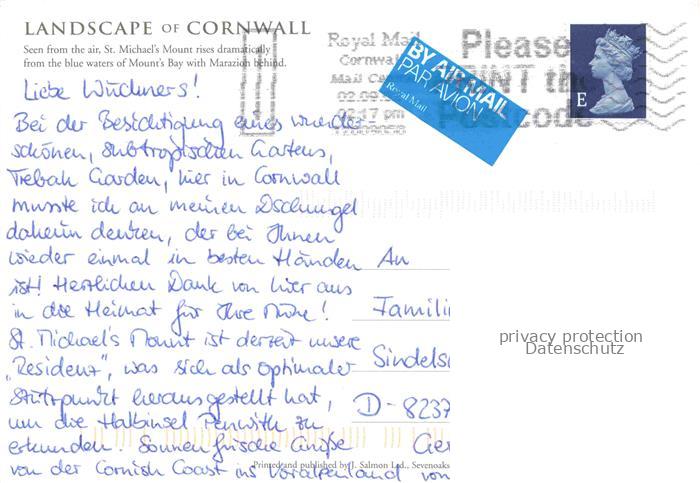 LANDSCAPE OF CORNWALL
Seen from the air, St. Michael's Mount rises dramatically
from the blue waters of Mount's Bay with Marazion behind.
Royal Mail
Cornwall
Mail Ce
02.09
17 pm
BY AIR MAIL
PAR AVION
Royal Mail
Please
the
Postcode
E
Liebe Wüchners!
Bei der Besichtigung eines wunder-
schönen, subtropischen Gartens,
Trebah Garden, hier in Cornwall
musste ich an meinen Dschungel
daheim denken, der bei Ihnen
wieder einmal in besten Händen
ist! Herzlichen Dank von hier aus
in die Heimat für Ihre Mühe!
St. Michael's Mount ist derzeit unsere
„Residenz", was sich als optimaler
Stützpunkt herausgestellt hat,
um die Halbinsel Penwith zu
erkunden. Sonnenfrische Grüße
von der Cornish Coast ins Voralpenland von
An
Famili
Sindels
D-8237
Ger
privacy protection
Datenschutz
Printed and published by J. Salmon Ltd., Sevenoaks